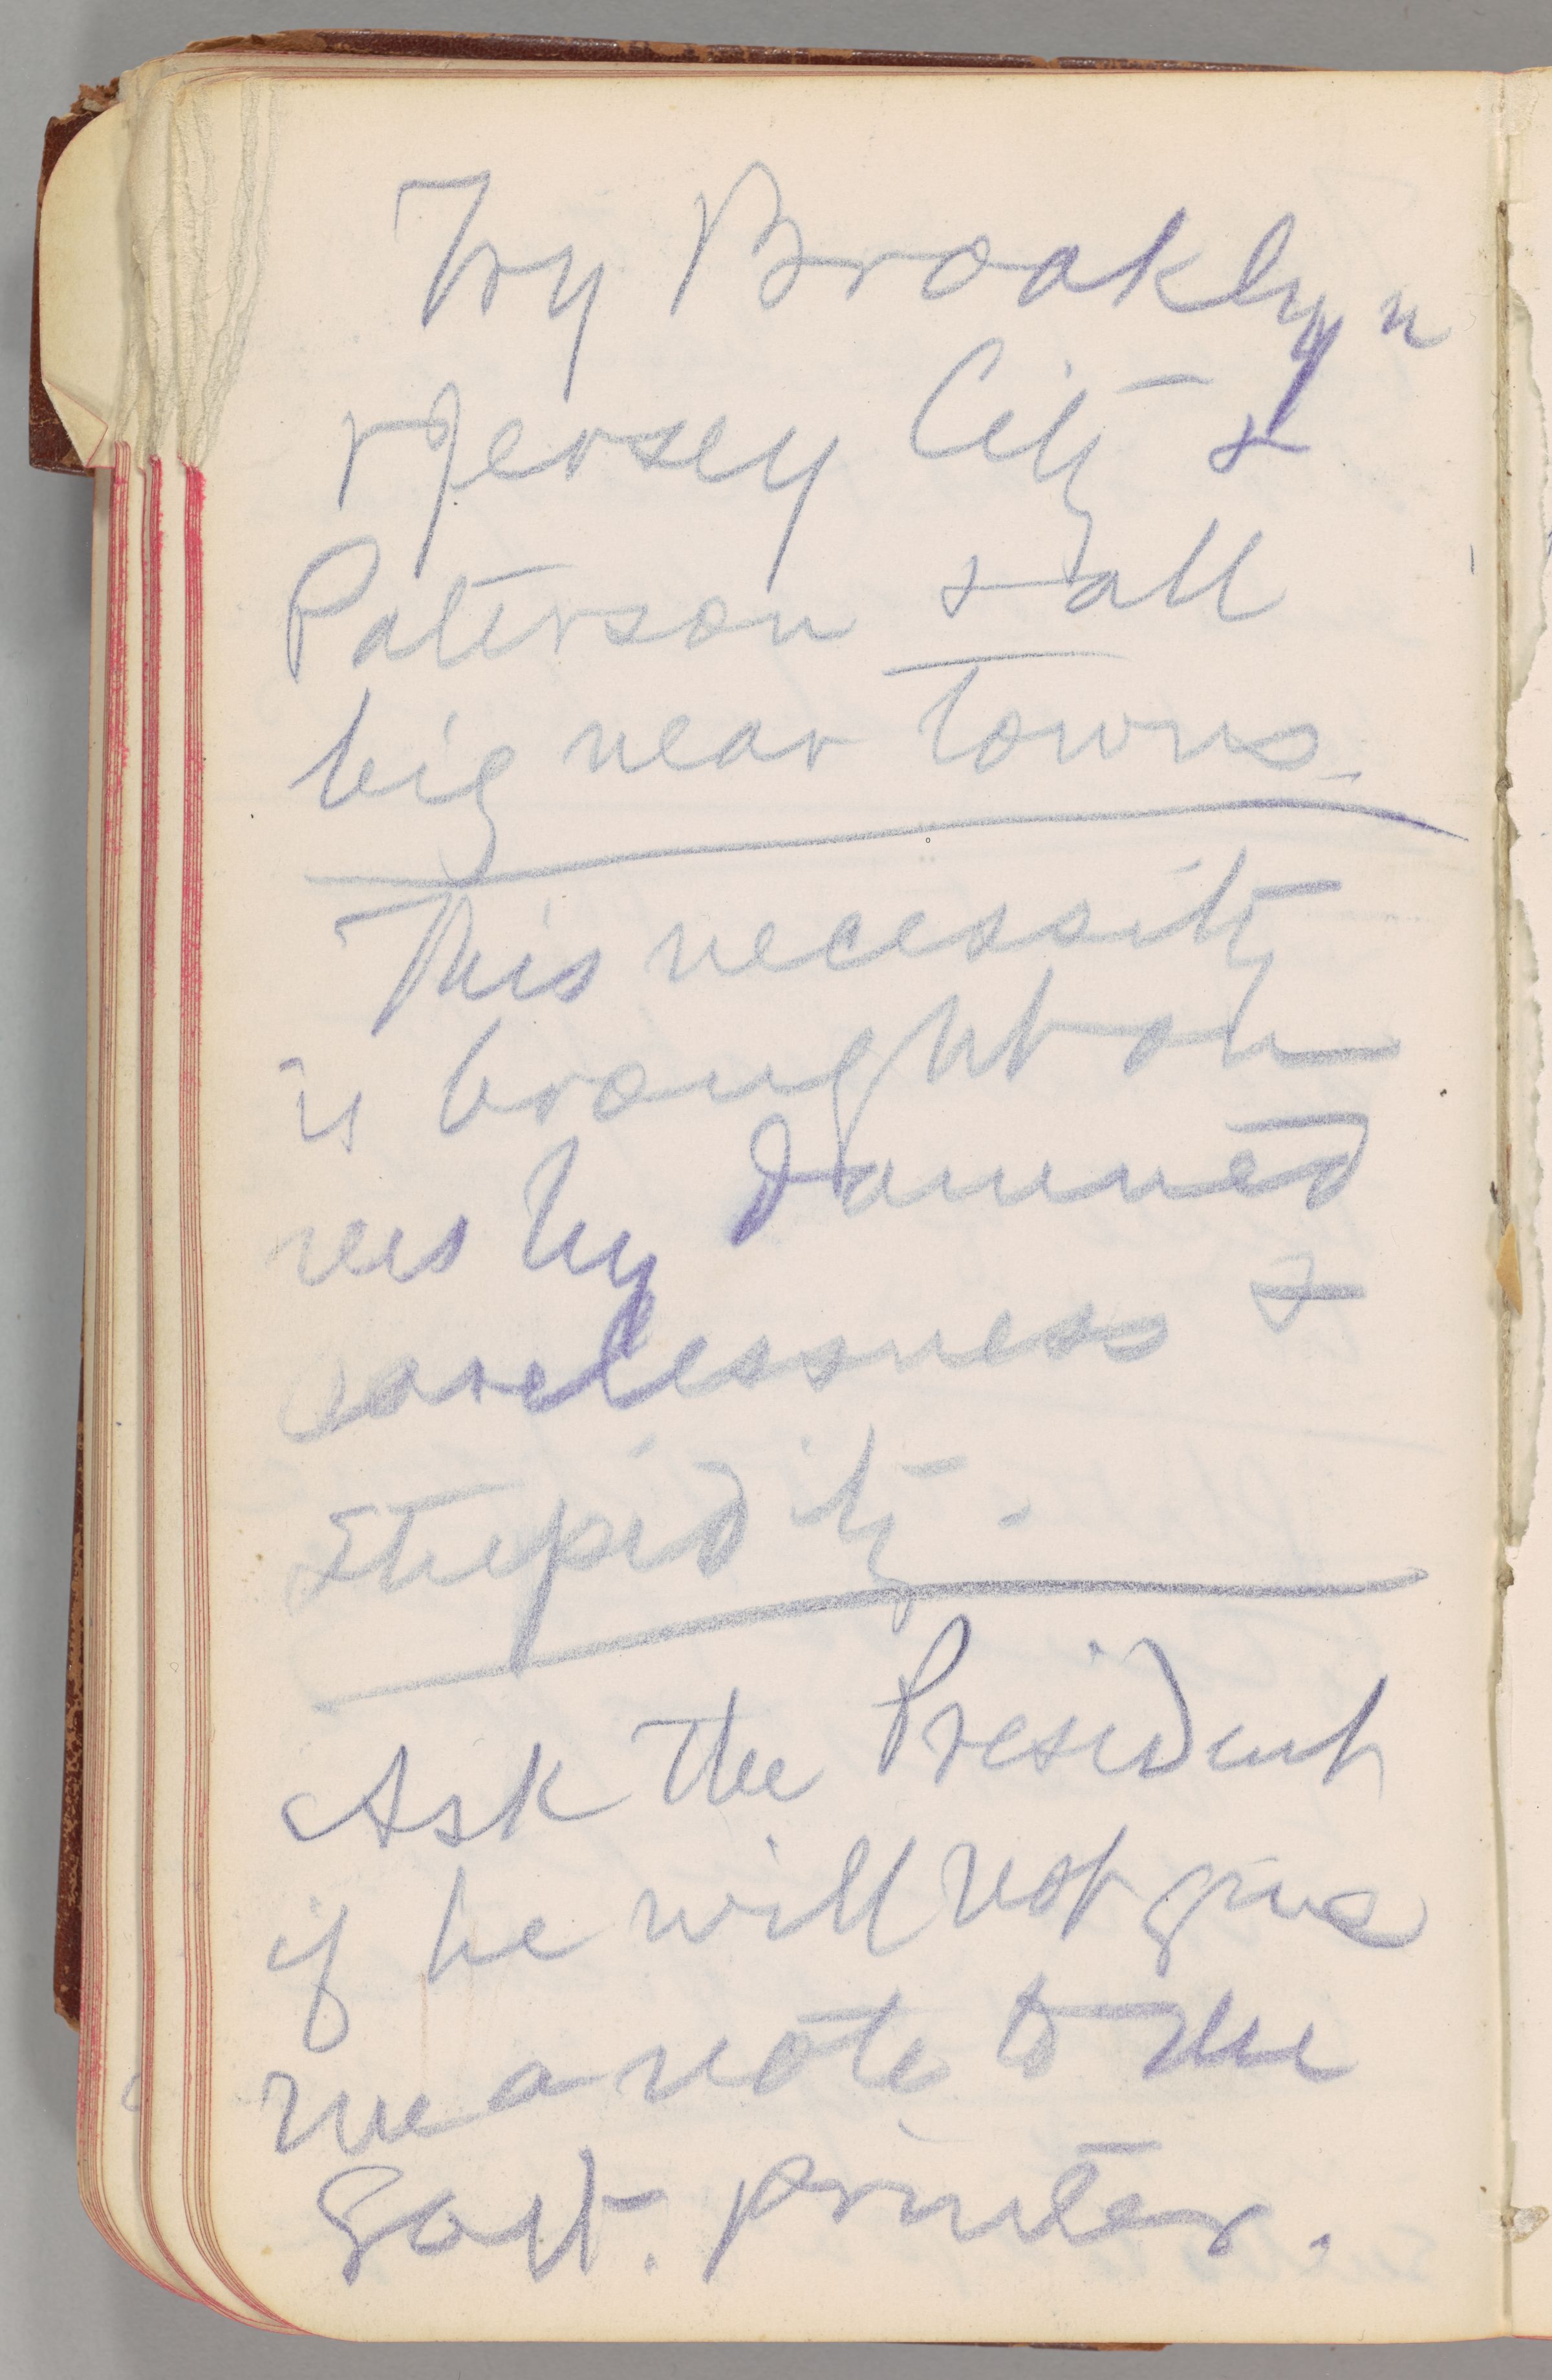 Try Brooklyn
& Jersey City &
Paterson & all
big near towns.
This necessity
is brought on
us by damned
carelessness &
stupidity.
Ask the President
if he will not give
me a note to the
Govt. printer.